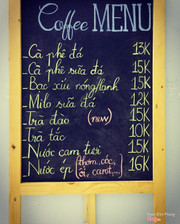 Coffee MENU
_Cà phê đá 13K
_Cà phê sữa đá 15K
_Bạc xỉu nóng/lạnh 15K
_Milo sữa đá 12K
_Trà đào (new) 15K
_Trà tắc 10K
_Nước cam tươi 15K
_Nước ép (thơm, cóc, ổi, carot,...) 16K